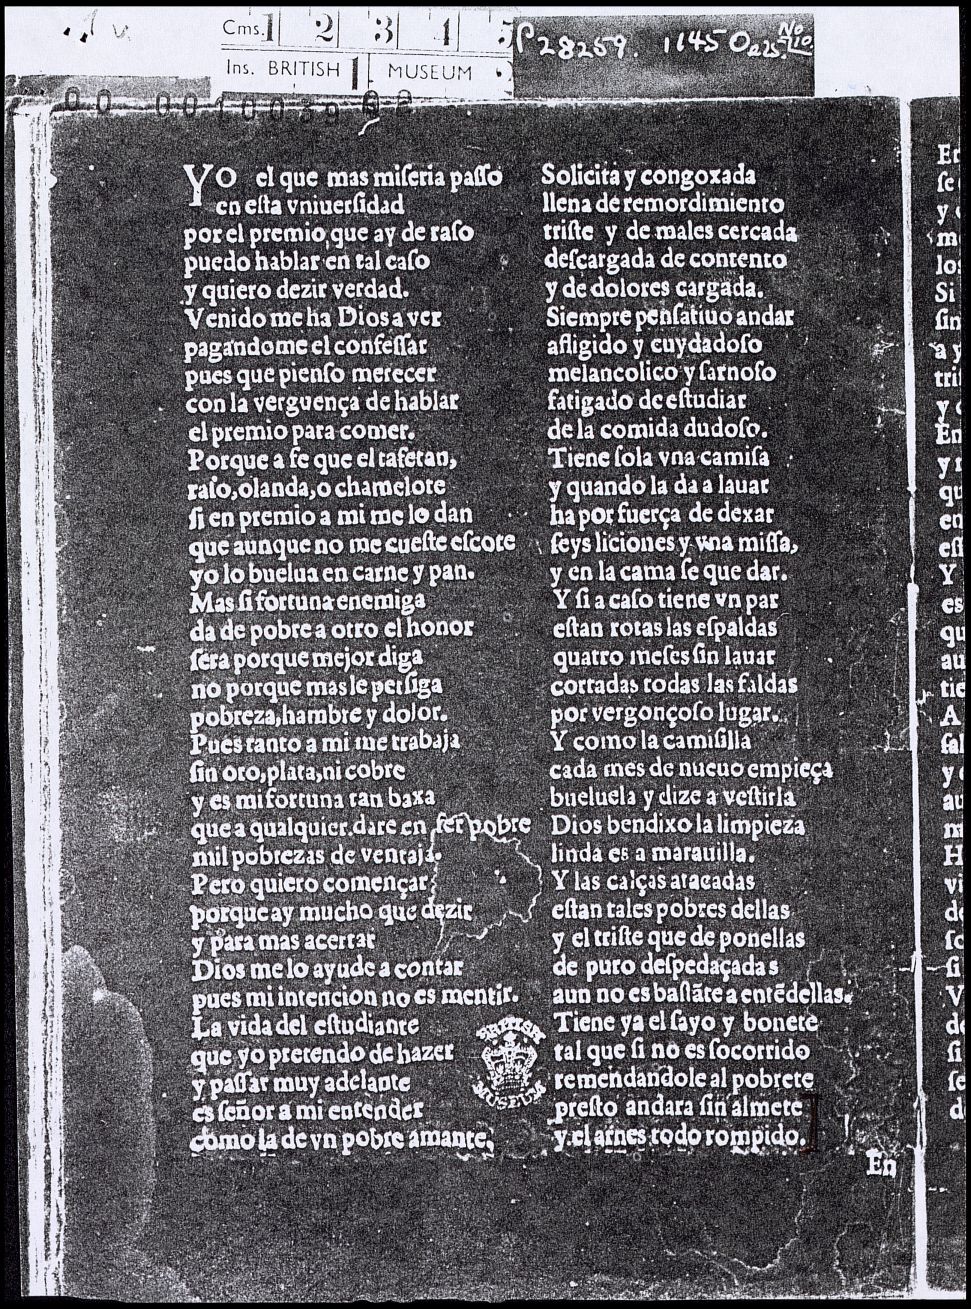 Cms. 1 2 3 4 5
Ins. BRITISH 1 MUSEUM
P 28259. 11450
No 10.
Yo el que mas miſeria paſſo
en eſta vniuerſidad
por el premio, que ay de raſo
puedo hablar en tal caſo
y quiero dezir verdad.
Venido me ha Dios a ver
pagandome el confeſſar
pues que pienſo merecer
con la verguença de hablar
el premio para comer.
Porque a fe que el tafetan,
raſo, olanda, o chamelote
ſi en premio a mi me lo dan
que aunque no me cueſte eſcote
yo lo buelua en carne y pan.
Mas ſi fortuna enemiga
da de pobre a otro el honor
ſera porque mejor diga
no porque mas le perſiga
pobreza, hambre y dolor.
Pues tanto a mi me trabaja
ſin oro, plata, ni cobre
y es mi fortuna tan baxa
que a qualquier dare en ſer pobre
mil pobrezas de ventaja.
Pero quiero començar
porque ay mucho que dezir
y para mas acertar
Dios me lo ayude a contar
pues mi intencion no es mentir.
La vida del eſtudiante
que yo pretendo de hazer
y paſſar muy adelante
es ſeñor a mi entender
como la de vn pobre amante,
BRITISH
MUSEUM
Solicita y congoxada
llena de remordimiento
triſte y de males cercada
deſcargada de contento
y de dolores cargada.
Siempre penſatiuo andar
afligido y cuydadoſo
melancolico y ſarnoſo
fatigado de eſtudiar
de la comida dudoſo.
Tiene ſola vna camiſa
y quando la da a lauar
ha por fuerça de dexar
ſeys liciones y vna miſſa,
y en la cama ſe que dar.
Y ſi a caſo tiene vn par
eſtan rotas las eſpaldas
quatro meſes ſin lauar
cortadas todas las faldas
por vergonçoſo lugar.
Y como la camiſilla
cada mes de nueuo empieça
bueluela y dize a veſtirla
Dios bendixo la limpieza
linda es a marauilla.
Y las calças atacadas
eſtan tales pobres dellas
y el triſte que de ponellas
de puro deſpedaçadas
aun no es baſtãte a entẽdellas.
Tiene ya el ſayo y bonete
tal que ſi no es ſocorrido
remendandole al pobrete
preſto andara ſin almete
y el arnes todo rompido.
En